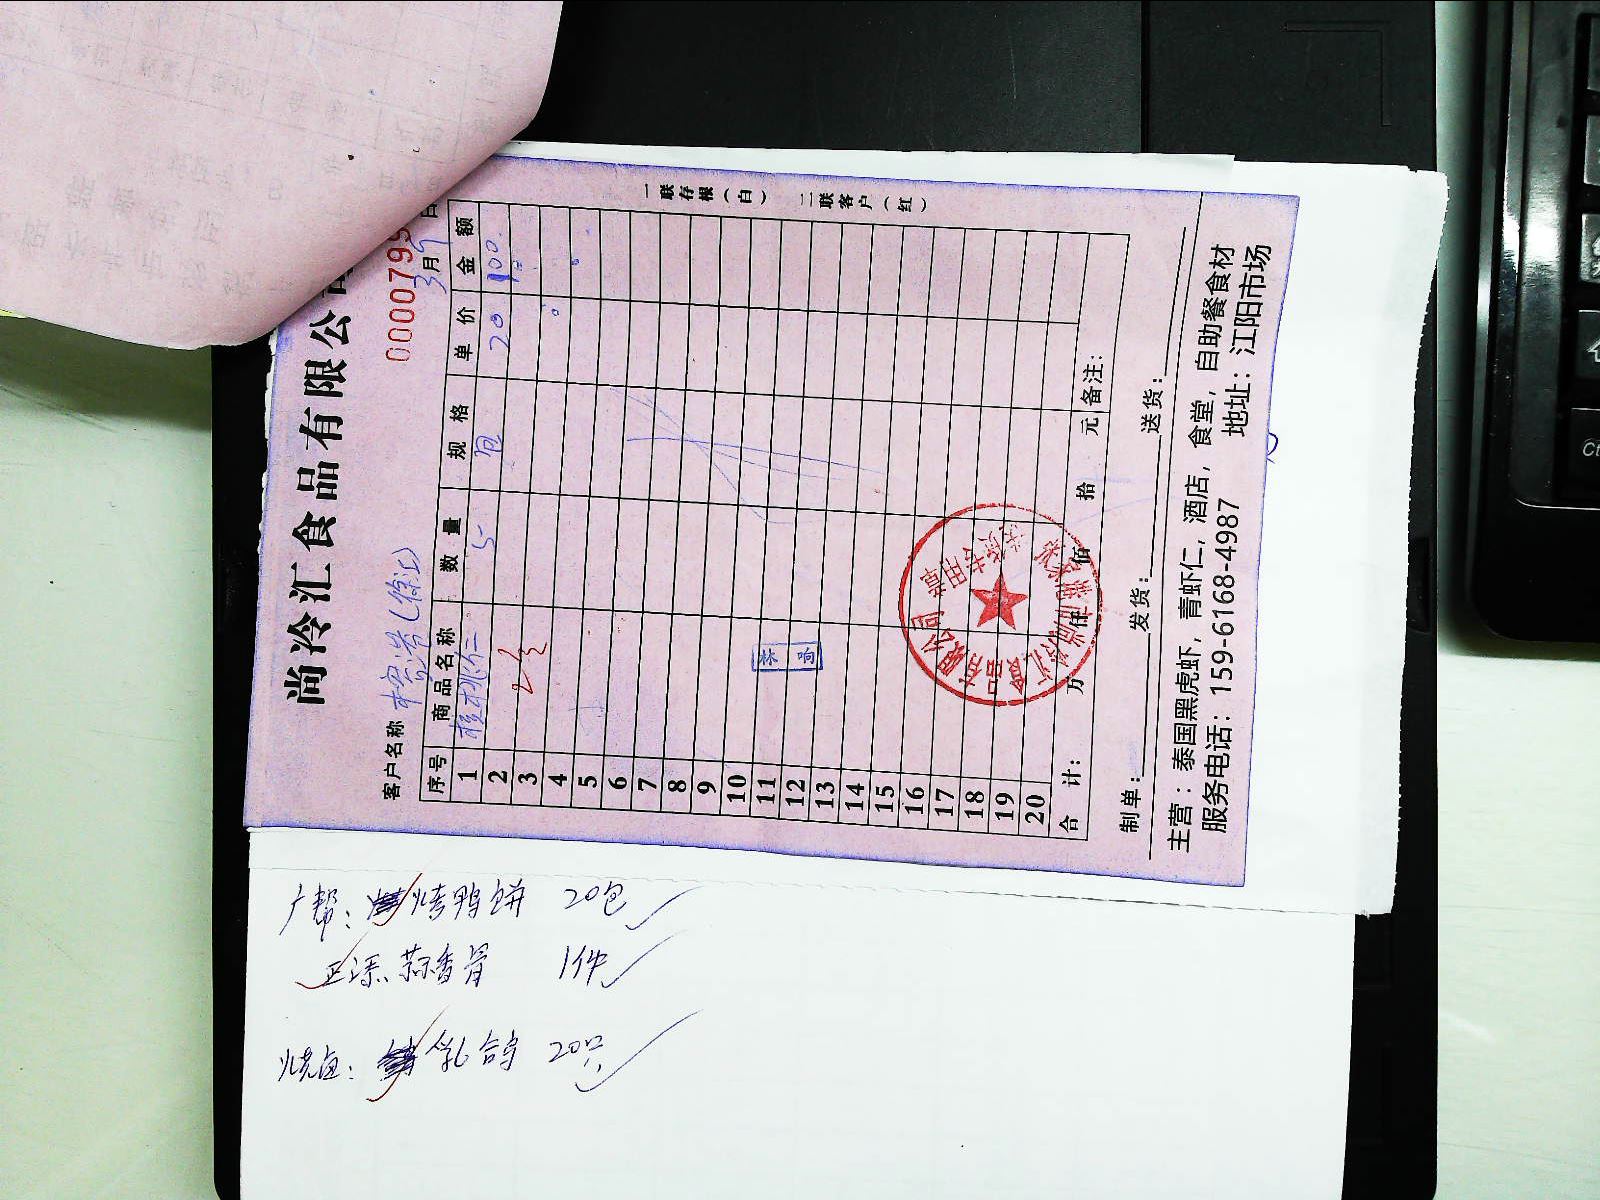 尚冷汇食品有限公
0000799
客户名称
3月9日
序号 商品名称 数量 规格 单价 金额
1 核桃仁 5 包 20 100.
2
3
4
5
6
7
8
9
10
11
12
13
14
15
16
17
18
19
20
林响
合计: 万 仟 佰 拾 元 备注:
制单: 发货: 送货:
主营：泰国黑虎虾，青虾仁，酒店，食堂，自助餐食材
服务电话：159-6168-4987 地址：江阳市场
一联存根（白） 二联客户（红）
广帮: 烤鸭饼 20包
蒜香骨 1件
烧卤: 乳鸽 20只
Ct